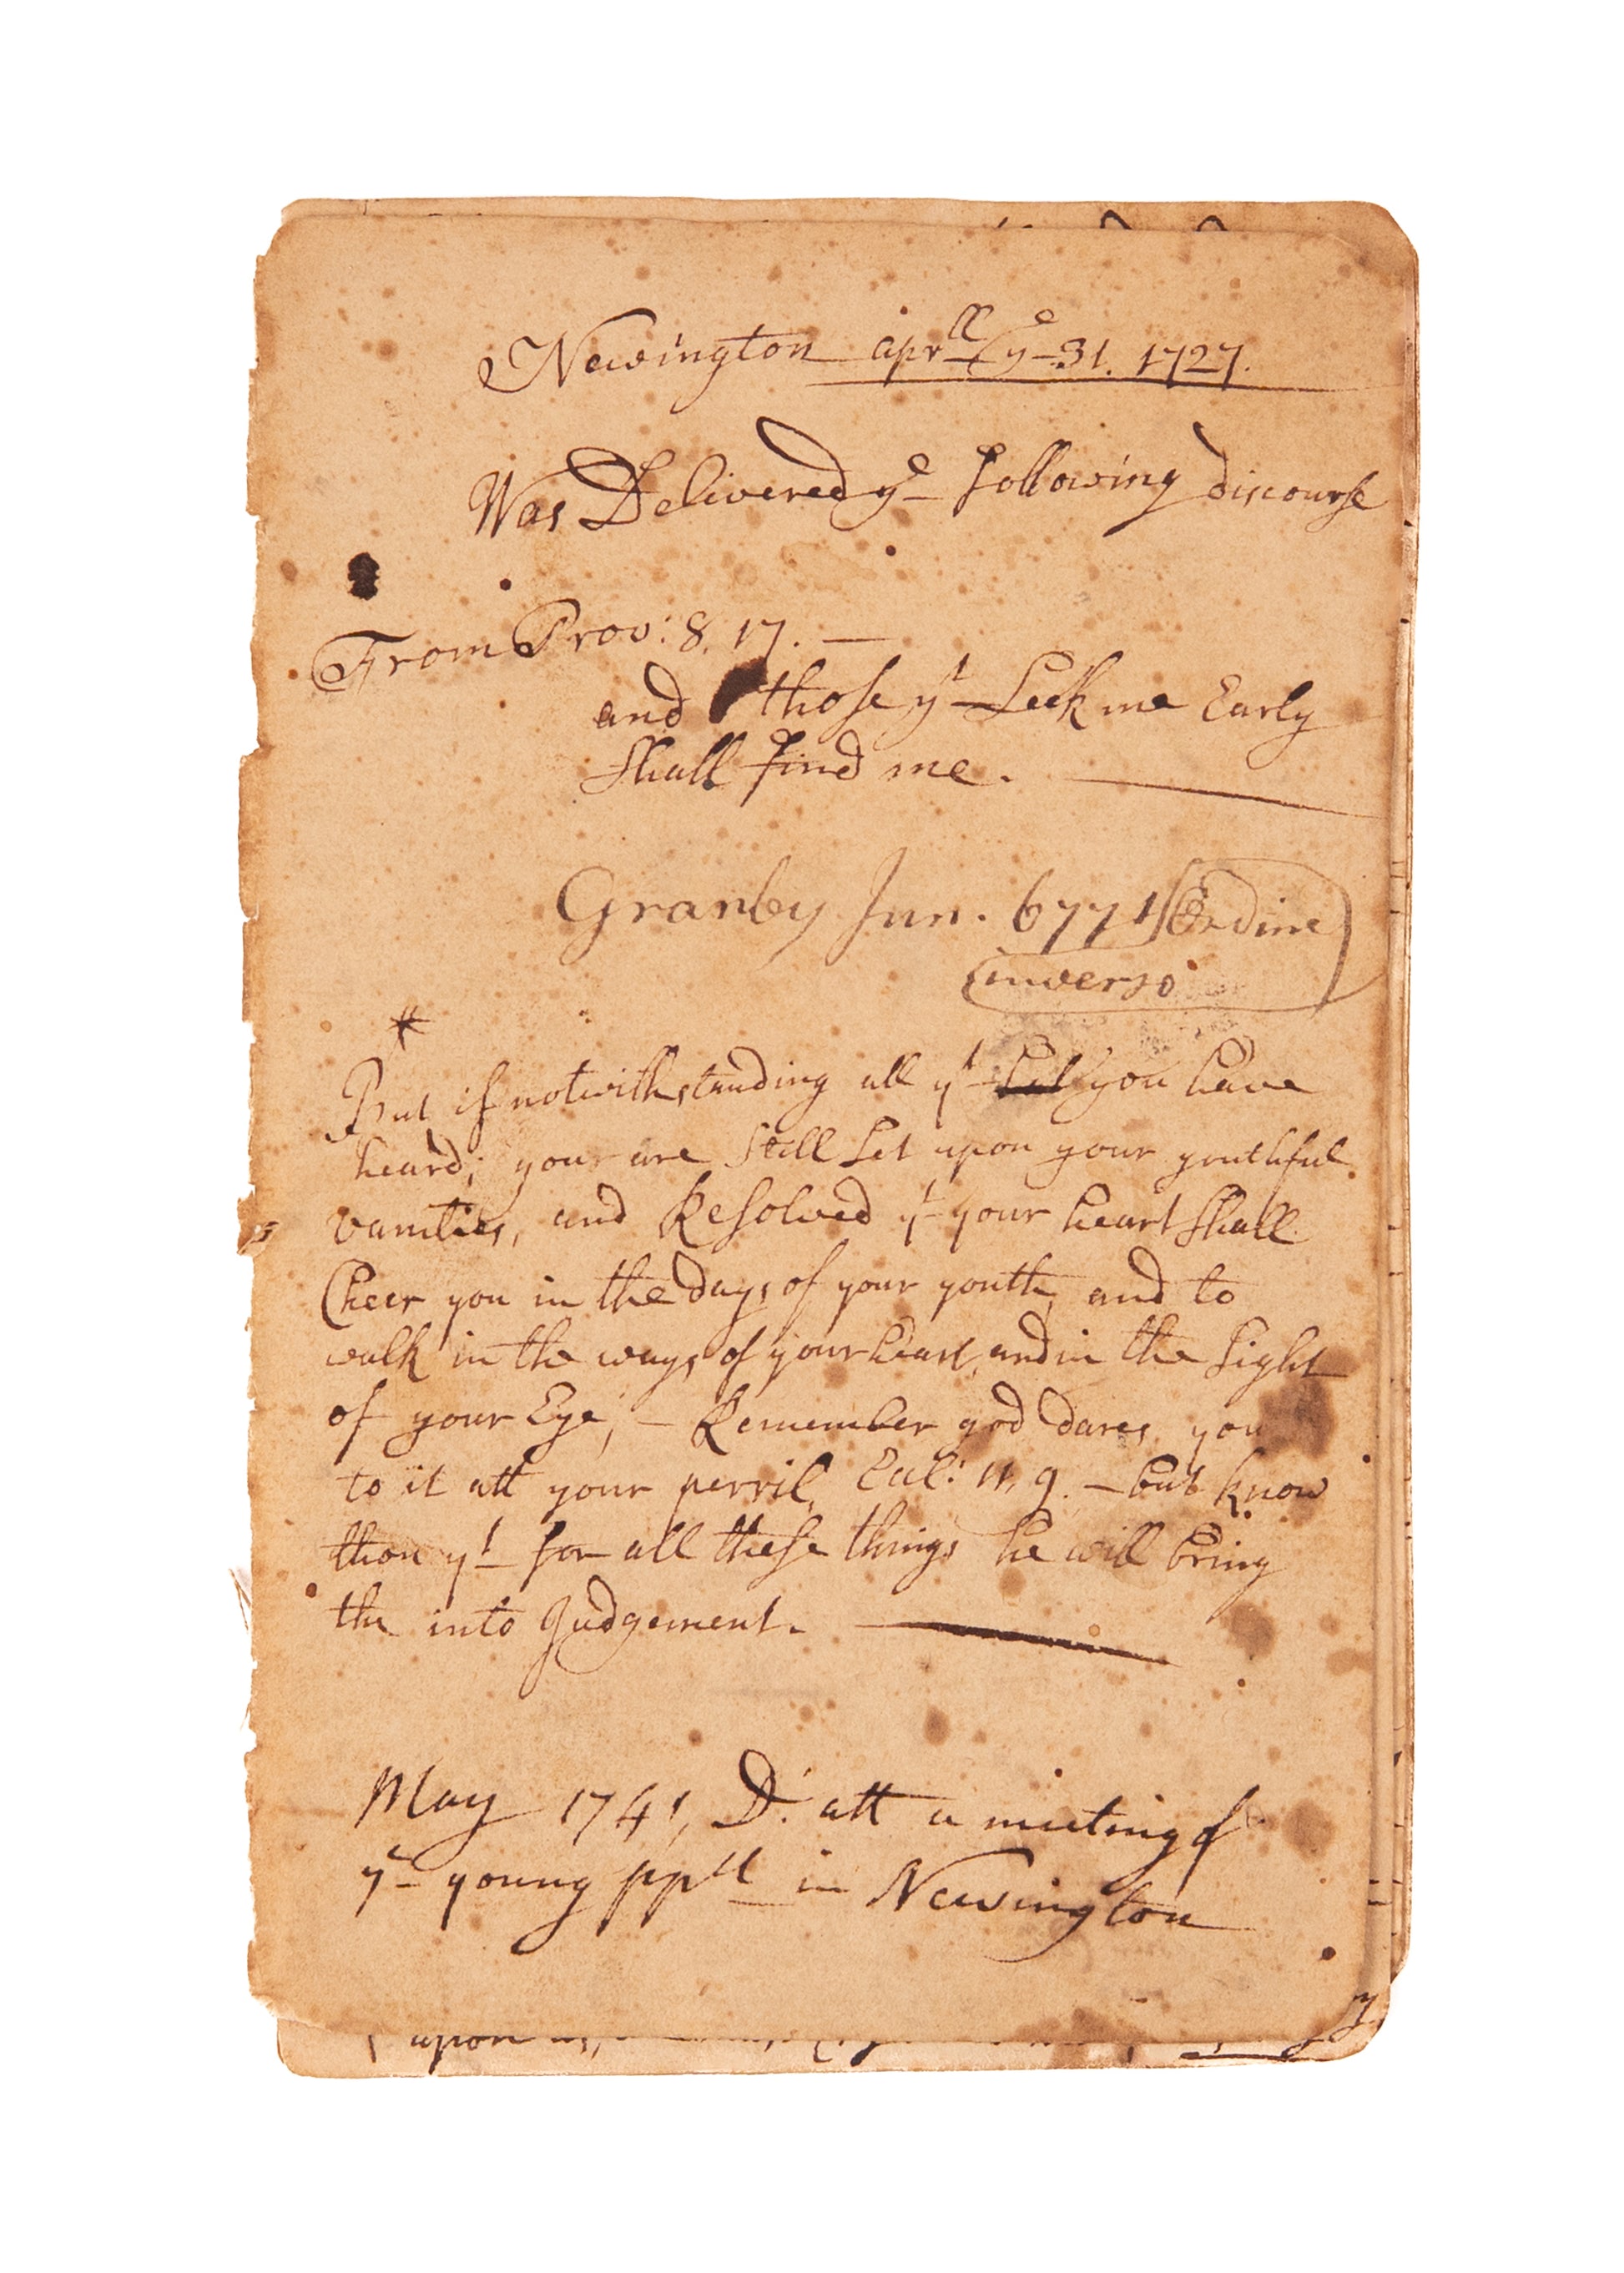 Newington aprll ye 31. 1727.
Was Delivered ye following discourse
From Prov: 8, 17. —
and those yt Seek me Early
Shall find me. —
Granby Jun. 6771 (Ordine
inverso)
*
But if notwithstanding all yt you have
heard; your are Still Set upon your youthful
vanities, and Resolved yt your heart Shall
Cheer you in the days of your youth, and to
walk in the ways of your heart, and in the Sight
of your Eye, — Remember god dares you
to it att your perril, Ecl: 11, 9. — but know
thou yt for all these things he will bring
the into Judgement. —
May 1741, D. att a meeting of
ye young ppll in Newington
upon